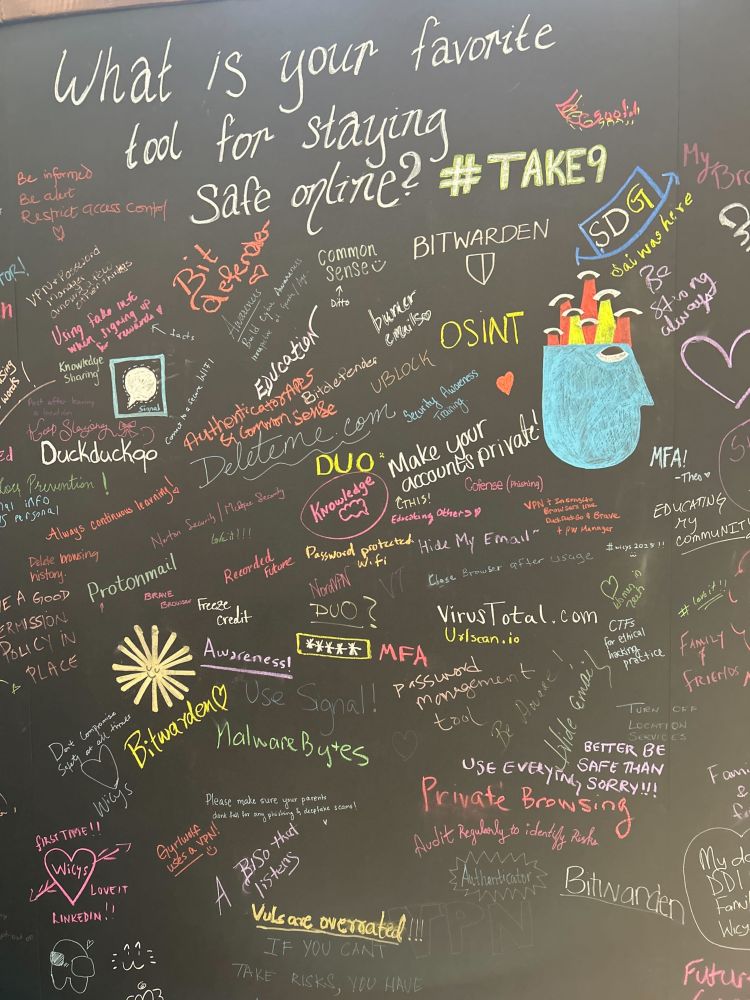 What is your favorite
tool for staying
Safe online?
#TAKE9
Be informed
Be alert
Restrict access control
My
Bro
SDG
Sai was here
Be
Strong
always
Bit
defender
Common
Sense
Ditto
BITWARDEN
VPN + Password
Manager
Using fake info
when signing up
for rewards
facts
Knowledge
Sharing
Signal
EDUCATION
burner
emails
OSINT
UBLOCK
Authenticator Apps
& Common Sense
Bitdefender
Security Awareness
Training
Deleteme.com
Duckduckgo
DUO
Make your
accounts private!
↑THIS!
Educating Others
Knowledge
Cofense (Phishing)
MFA!
-Theo
EDUCATING
MY
COMMUNITY
VPN + Incognito
Browsers like
DuckDuckGo & Brave
+ PW Manager
Loss Prevention!
Always continuous learning!
Norton Security / McAfee Security
Love it!!!
Password protected
Wifi
Hide My Email
#wicys 2025!!
Delete browsing
history.
Protonmail
BRAVE
BROWSER
Recorded
Future
NordVPN
VT
Close Browser after usage
Women in
Tech
#love it!!
Freeze
Credit
DUO?
VirusTotal.com
Urlscan.io
CTFs
for ethical
hacking
practice
E A GOOD
ERMISSION
POLICY IN
PLACE
Awareness!
*****
MFA
FAMILY
&
FRIENDS
Password
management
tool
Use Signal!
Be Aware!
Hide Email
TURN OFF
LOCATION
SERVICES
Don't Compromise
Safety at all times
Bitwarden
MalwareBytes
WiCyS
BETTER BE
SAFE THAN
SORRY!!!
USE EVERYTHING
Private Browsing
Please make sure your parents
dont fall for any phishing & deepfake scams!
Audit Regularly to identify Risks
FIRST TIME!!
WiCyS
LOVE IT
LINKEDIN!!
uses a VPN!
A BISO that
listens
Authenticator
Bitwarden
Vulns are overrated!!!
TPN
IF YOU CANT
TAKE RISKS, YOU HAVE
My d
DDI
Famil
WiCy
Futur